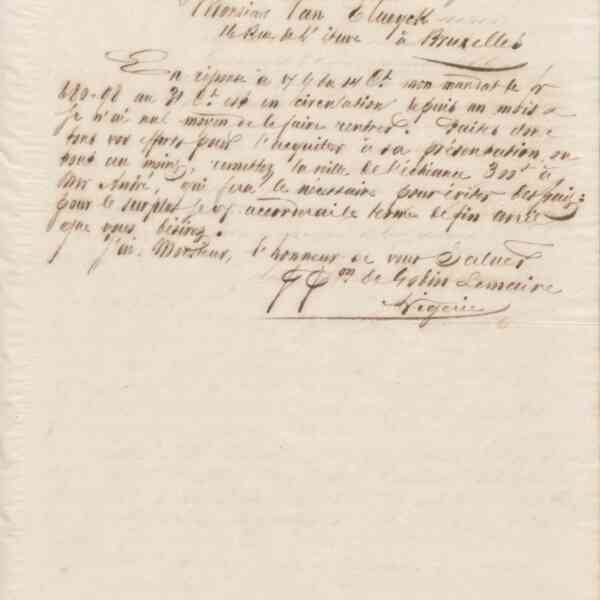 Monsieur Van
16 Rue de l'Etuve à Bruxelles
En réponse à v/ du 14 Ct mon mandat de fr
680-98 au 31 Ct est en circulation depuis un mois &
je n'ai nul moyen de le faire rentrer. Faites donc
tous vos efforts pour l'acquitter à sa présentation, ou
tout au moins, remettez la veille de l'échéance 300 f à
Mr André, qui fera le nécessaire pour éviter des frais;
pour le surplus je vs accorderai le terme de fin
que vous désirez.
J'ai, Monsieur, l'honneur de vous Saluer
de Gobin Lemaire